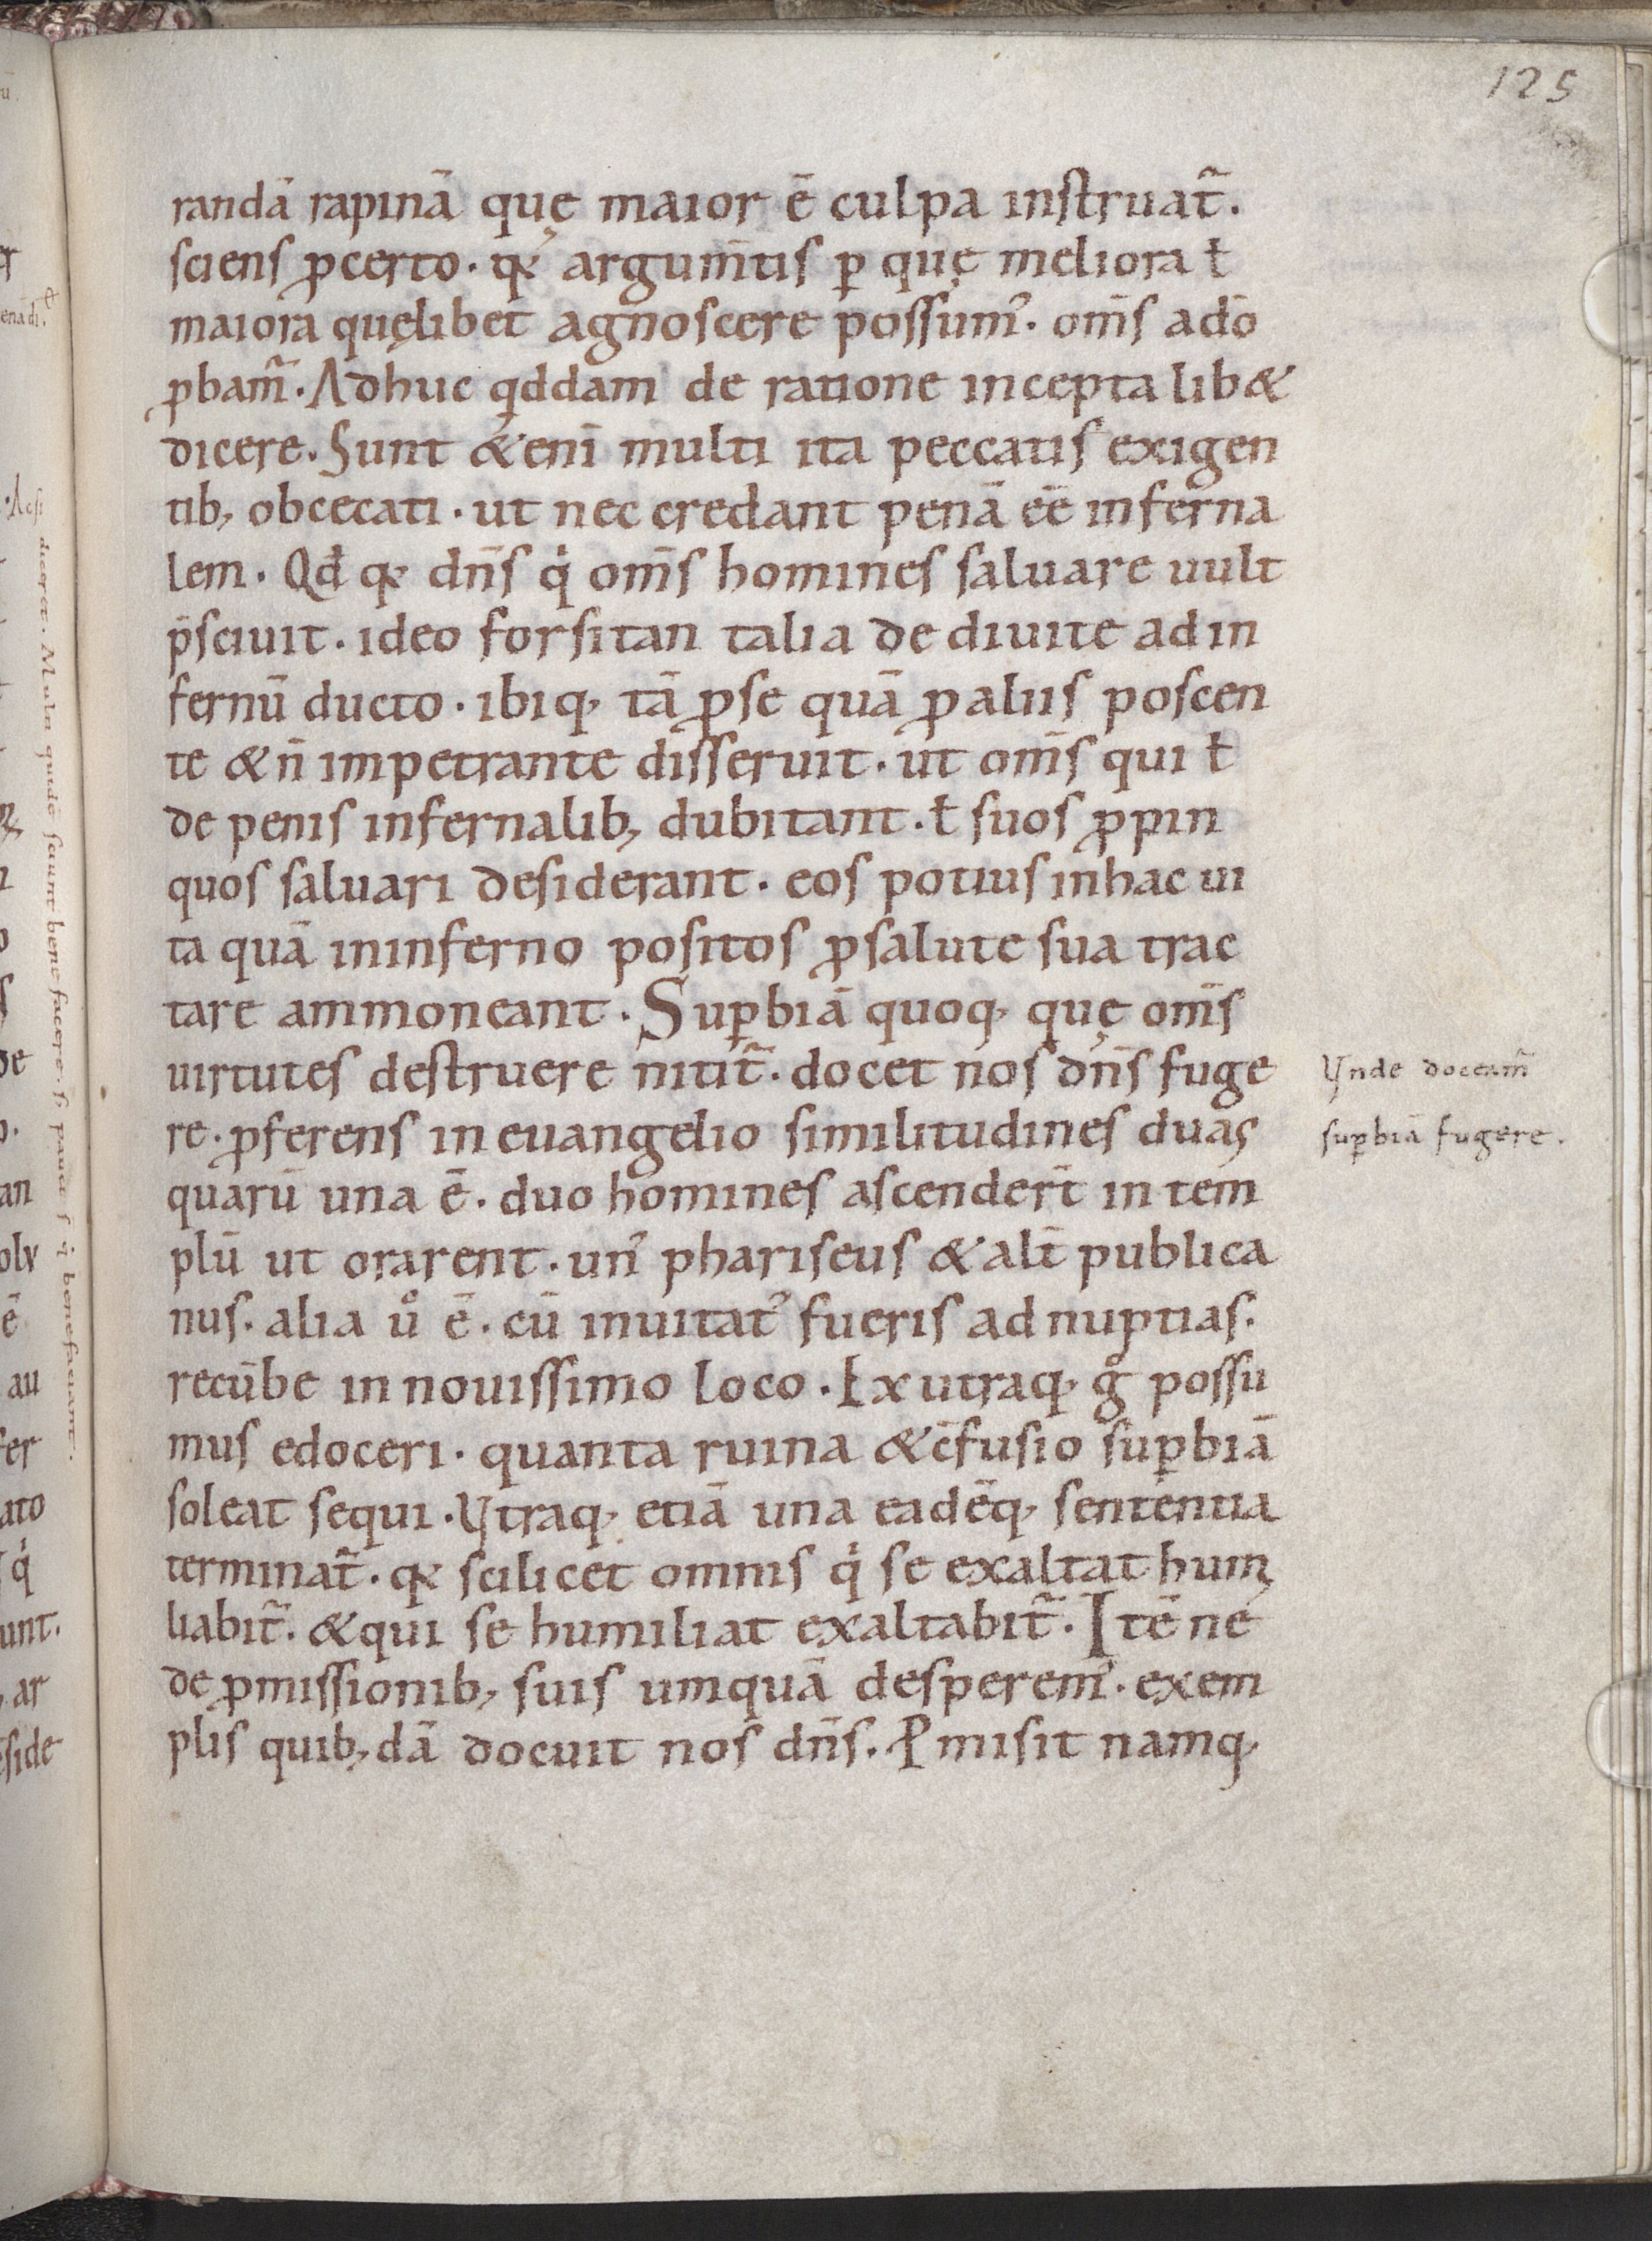 125
randā rapinā quę maior ē culpa instruat̃.
sciens ꝓcerto. qꝛ argum̄tis ꝑ quę meliora ł
maiora quęlibet agnoscere possumꝰ. om̄s adō
ꝓbam̃. Adhuc qddam de ratione incepta lib&
dicere. Sunt &eni̅ multi ita peccatis exigen
tib; obcęcati. ut nec credant penā ēē inferna
lem. Qđ qꝛ dn̄s qͥ om̄s homines saluare uult
p̄sciuit. ideo forsitan talia de diuite ad in
fernū ducto. ibiq; tā ꝓse quā ꝓ aliis poscen
te & n̄ impetrante disseruit. ut om̄s qui ł
de penis infernalib; dubitant. ł suos ꝓpin
quos saluari desiderant. eos potius in hac ui
ta quā in inferno positos ꝓ salute sua trac
tare ammoneant. Suꝑbiā quoq; quę om̄s
uirtutes destruere nitit̃. docet nos dn̄s fuge
re. ꝓferens in euangelio similitudines duas
quarū una ē. duo homines ascender̄t in tem
plū ut orarent. unꝰ phariseus & alt̄ publica
nus. alia uͦ ē. cū inuitatꝰ fueris ad nuptias.
recūbe in nouissimo loco. Ex utraq; gͦ possu
mus edoceri. quanta ruina & c̄fusio suꝑbiā
soleat sequi. Vtraq; etiā una eadēq; sententia
terminat̃. qꝛ scilicet omnis qͥ se exaltat humi
liabit̃. & qui se humiliat exaltabit̃. Itē ne
de ꝓmissionib; suis umquā desperemꝰ. exem
plis quib;dā docuit nos dn̄s. Ꝓmisit namq;
Vnde doceam̃
suꝑbiā fugere.